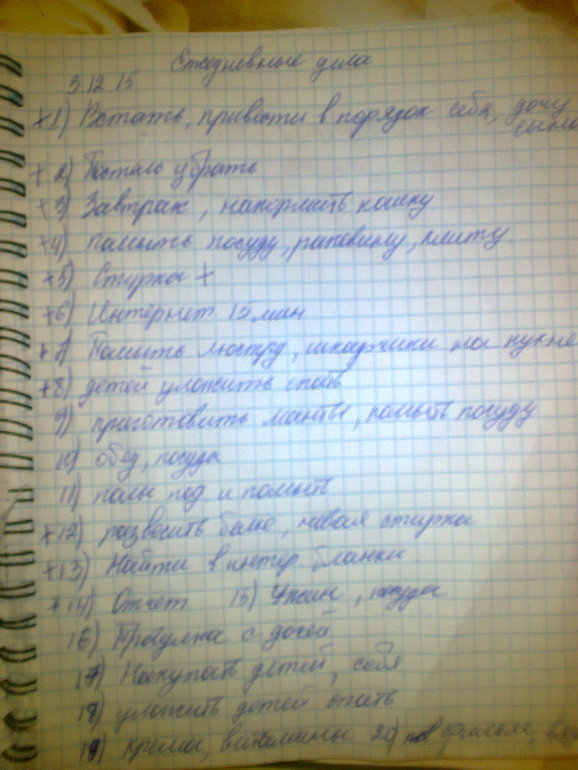 Ежедневные дела
3.12.15
+1) Встать, привести в порядок себя, дочу
сына
+2) Постель убрать
+3) Завтрак, накормить кошку
+4) помыть посуду, раковину, плиту
+5) Стирка +
+6) Интернет 15 мин
+7) Помыть люстру, шкафчики на кухне
+8) детей уложить спать
9) приготовить манты, помыть посуду
10) обед, посуда
11) полы под и помыть
+12) развесить бельё, новая стирка
+13) Найти в интер бланки
+14) Отчет 15) Ужин, посуда
16) Прогулка с дочей
17) Накупать детей, себя
18) уложить детей спать
19) крема, витамины 20) фильм,